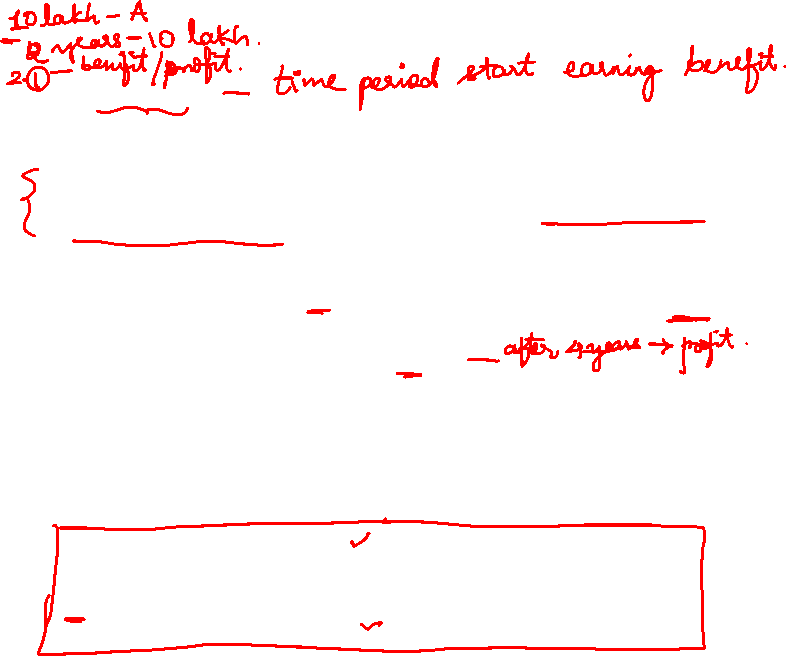 10 lakh - A
- 2 years - 10 lakh.
2.① - benifit/profit.
- time period start earning benefit.
- after 4 years → profit.